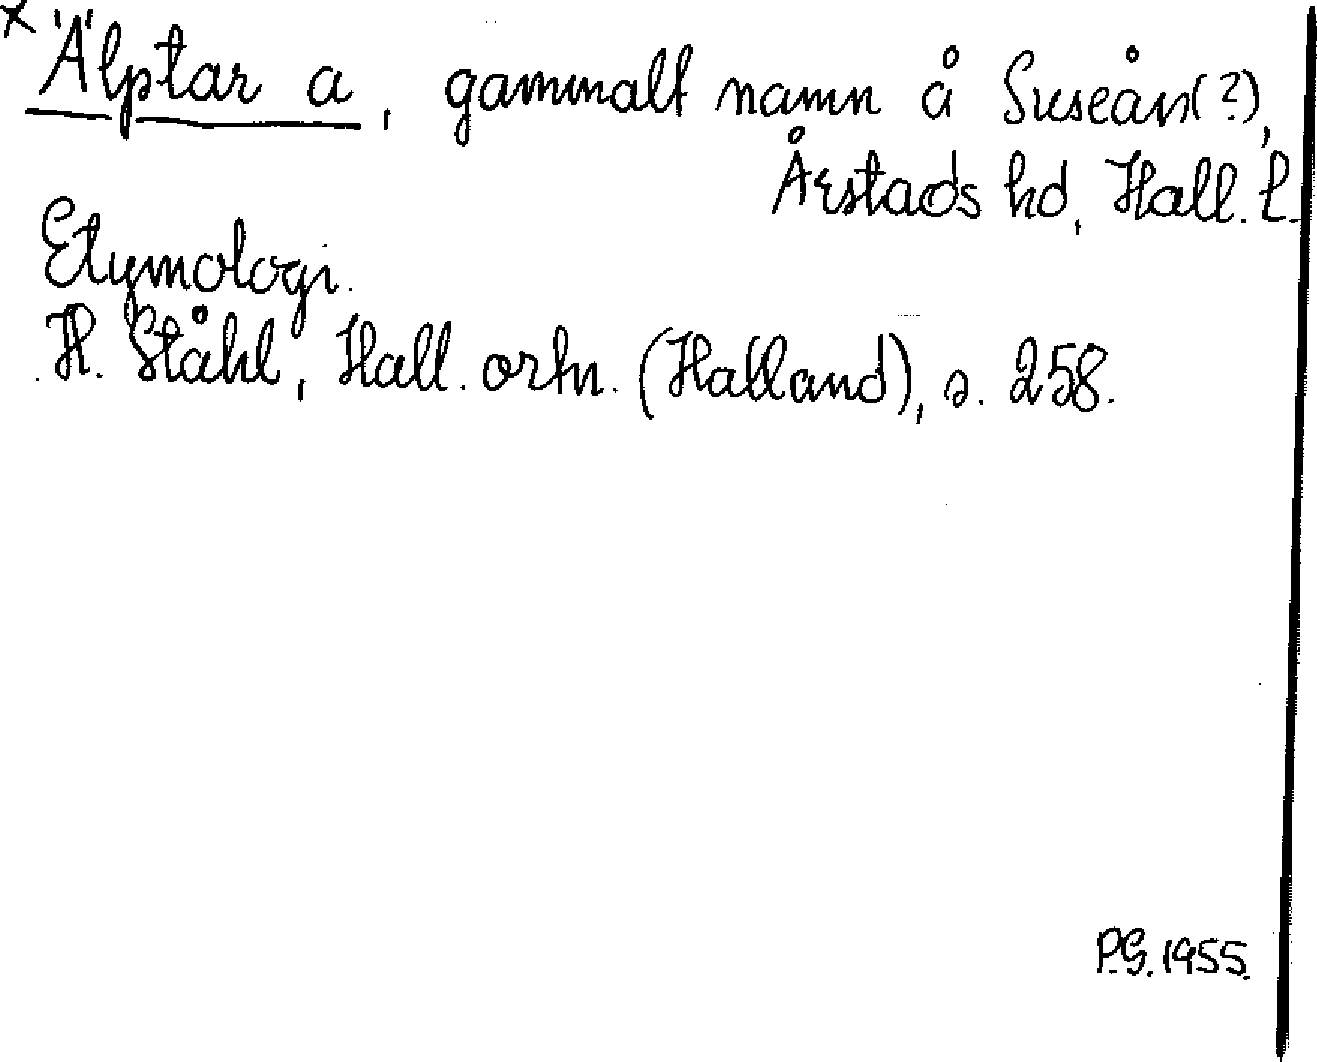 *Älptar a, gammalt namn å Suseån(?),
Årstads hd, Hall. l.
Etymologi.
H. Ståhl, Hall. ortn. (Halland), s. 258.
P.G. 1955.